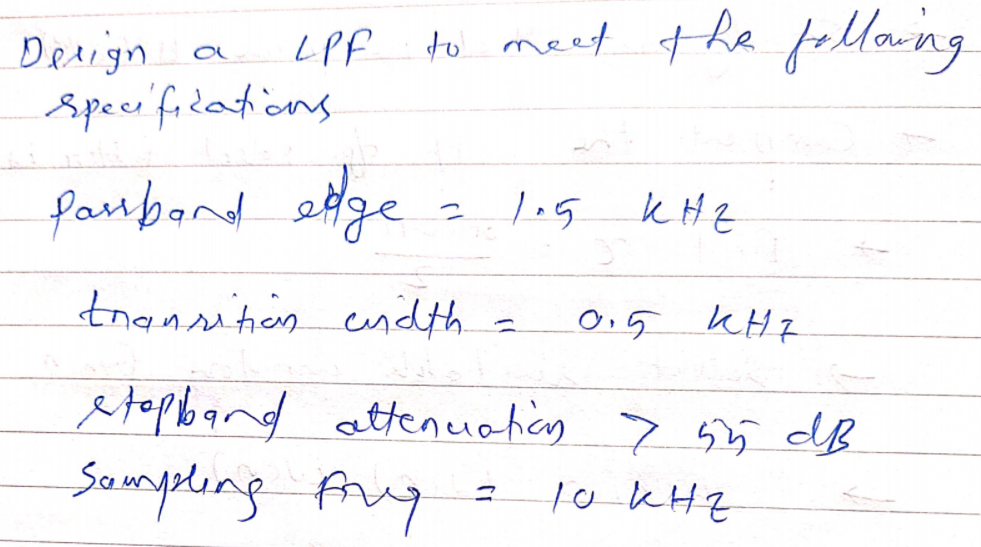 Design a LPF to meet the following
specifications
passband edge = 1.5 kHz
transition width = 0.5 kHz
stopband attenuation > 55 dB
Sampling freq = 10 kHz